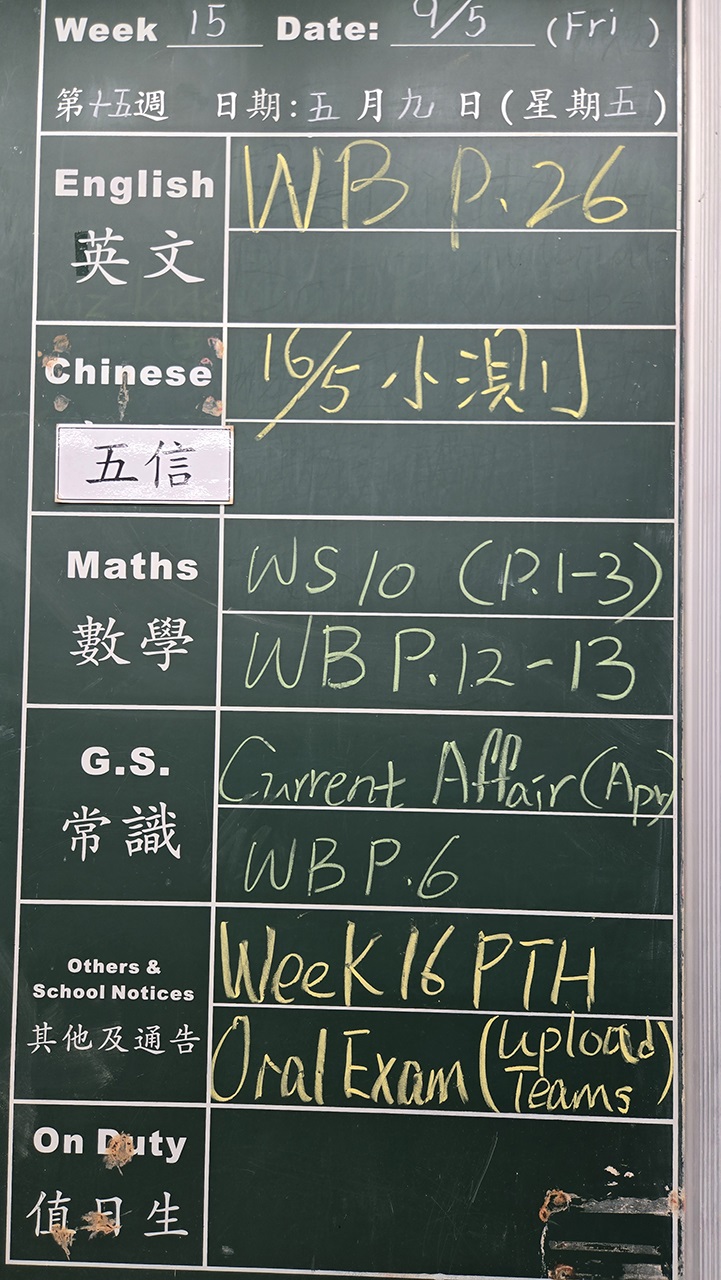 Week 15 Date: 9/5 (Fri)
第十五週 日期:五月九日(星期五)
English
WB P.26
英文
Chinese
16/5 小測
五信
Maths
WS 10 (P.1-3)
數學
WB P.12-13
G.S.
Current Affair (Apr)
常識
WB P.6
Others &
School Notices
Week 16 PTH
其他及通告
Oral Exam (upload
Teams)
On Duty
值日生